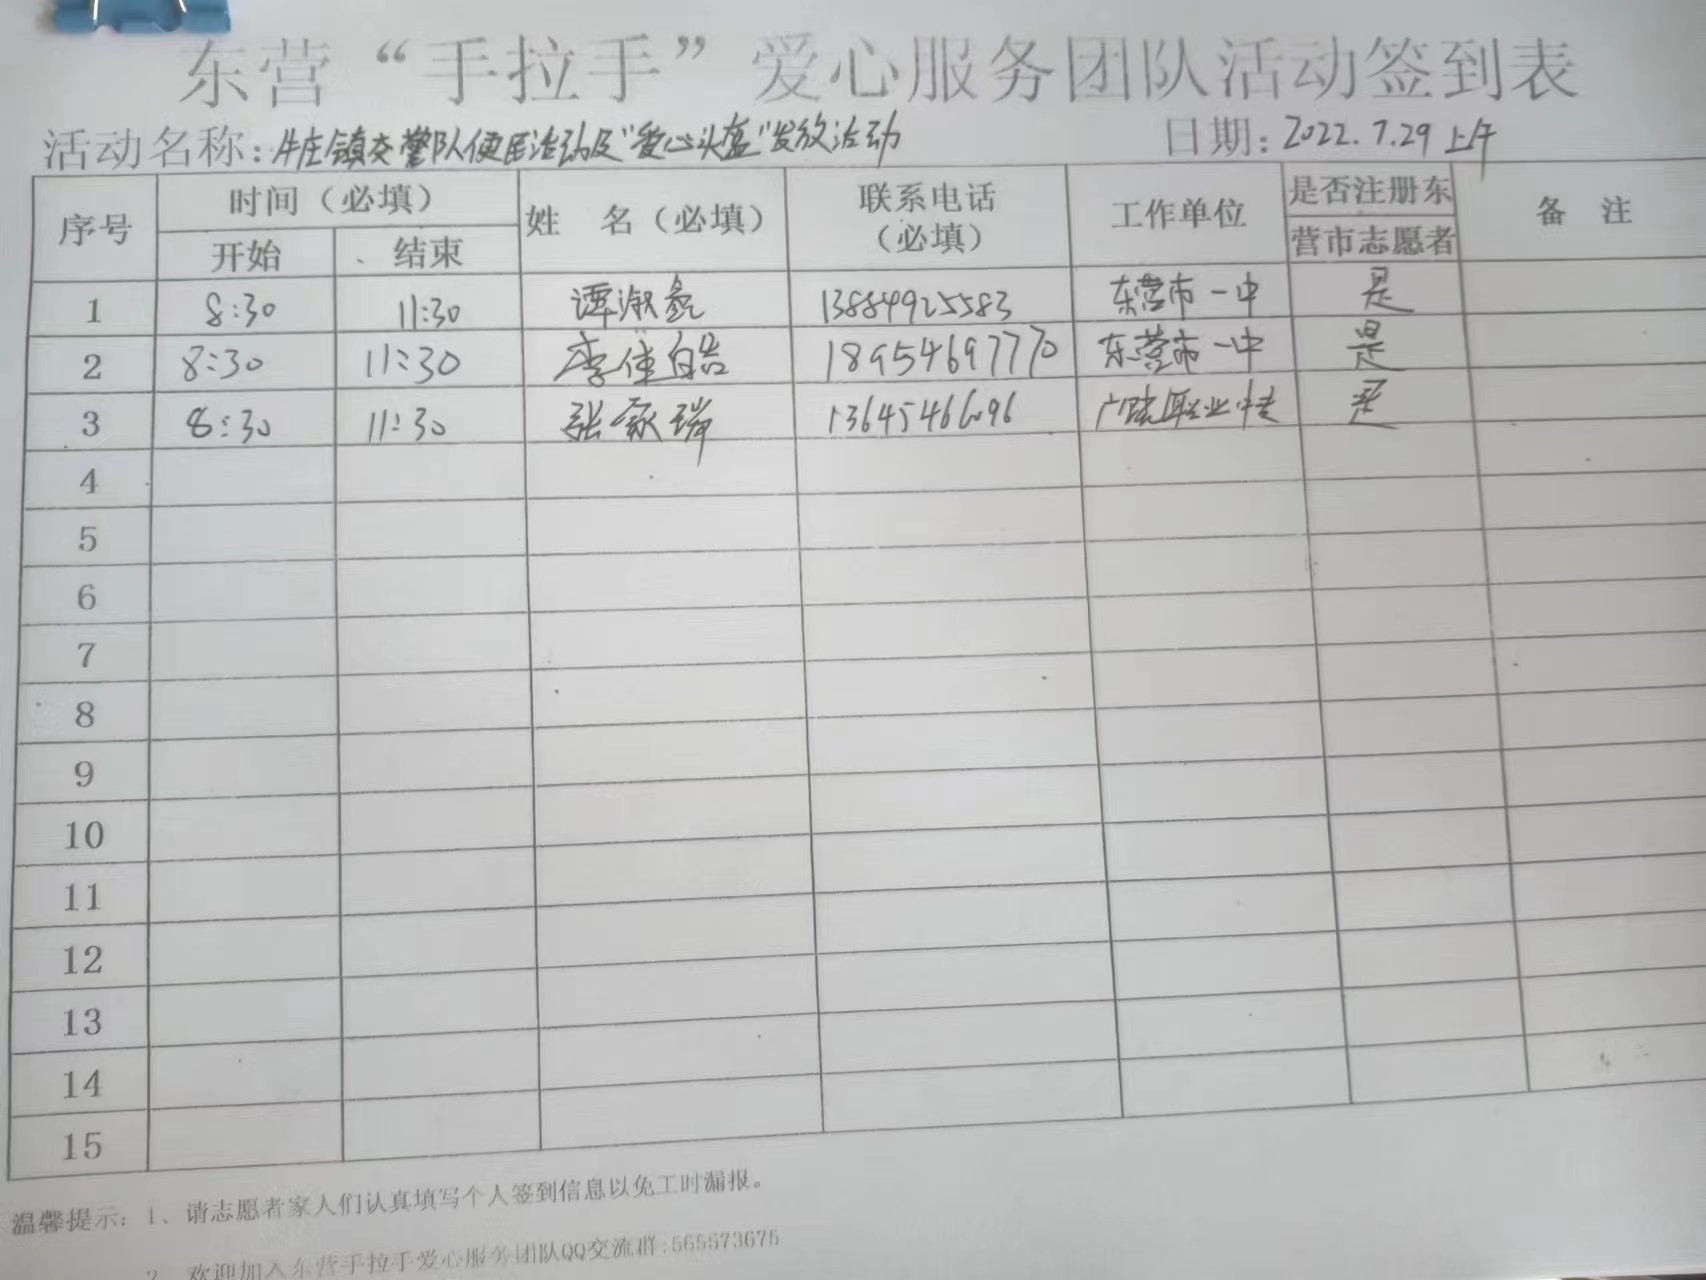 东营“手拉手”爱心服务团队活动签到表
活动名称：牛庄镇交警队便民活动及“爱心头盔”发放活动 日期：2022.7.29 上午
序号 时间（必填） 姓 名（必填） 联系电话（必填） 工作单位 是否注册东营市志愿者 备 注
开始 结束
1 8:30 11:30 谭淑 13884925583 东营市一中 是
2 8:30 11:30 李佳皓 18954697770 东营市一中 是
3 8:30 11:30 张 瑞 13645466096 广饶职业中专 是
4
5
6
7
8
9
10
11
12
13
14
15
温馨提示：1、请志愿者家人们认真填写个人签到信息以免工时漏报。
2、欢迎加入东营手拉手爱心服务团队QQ交流群:565573675